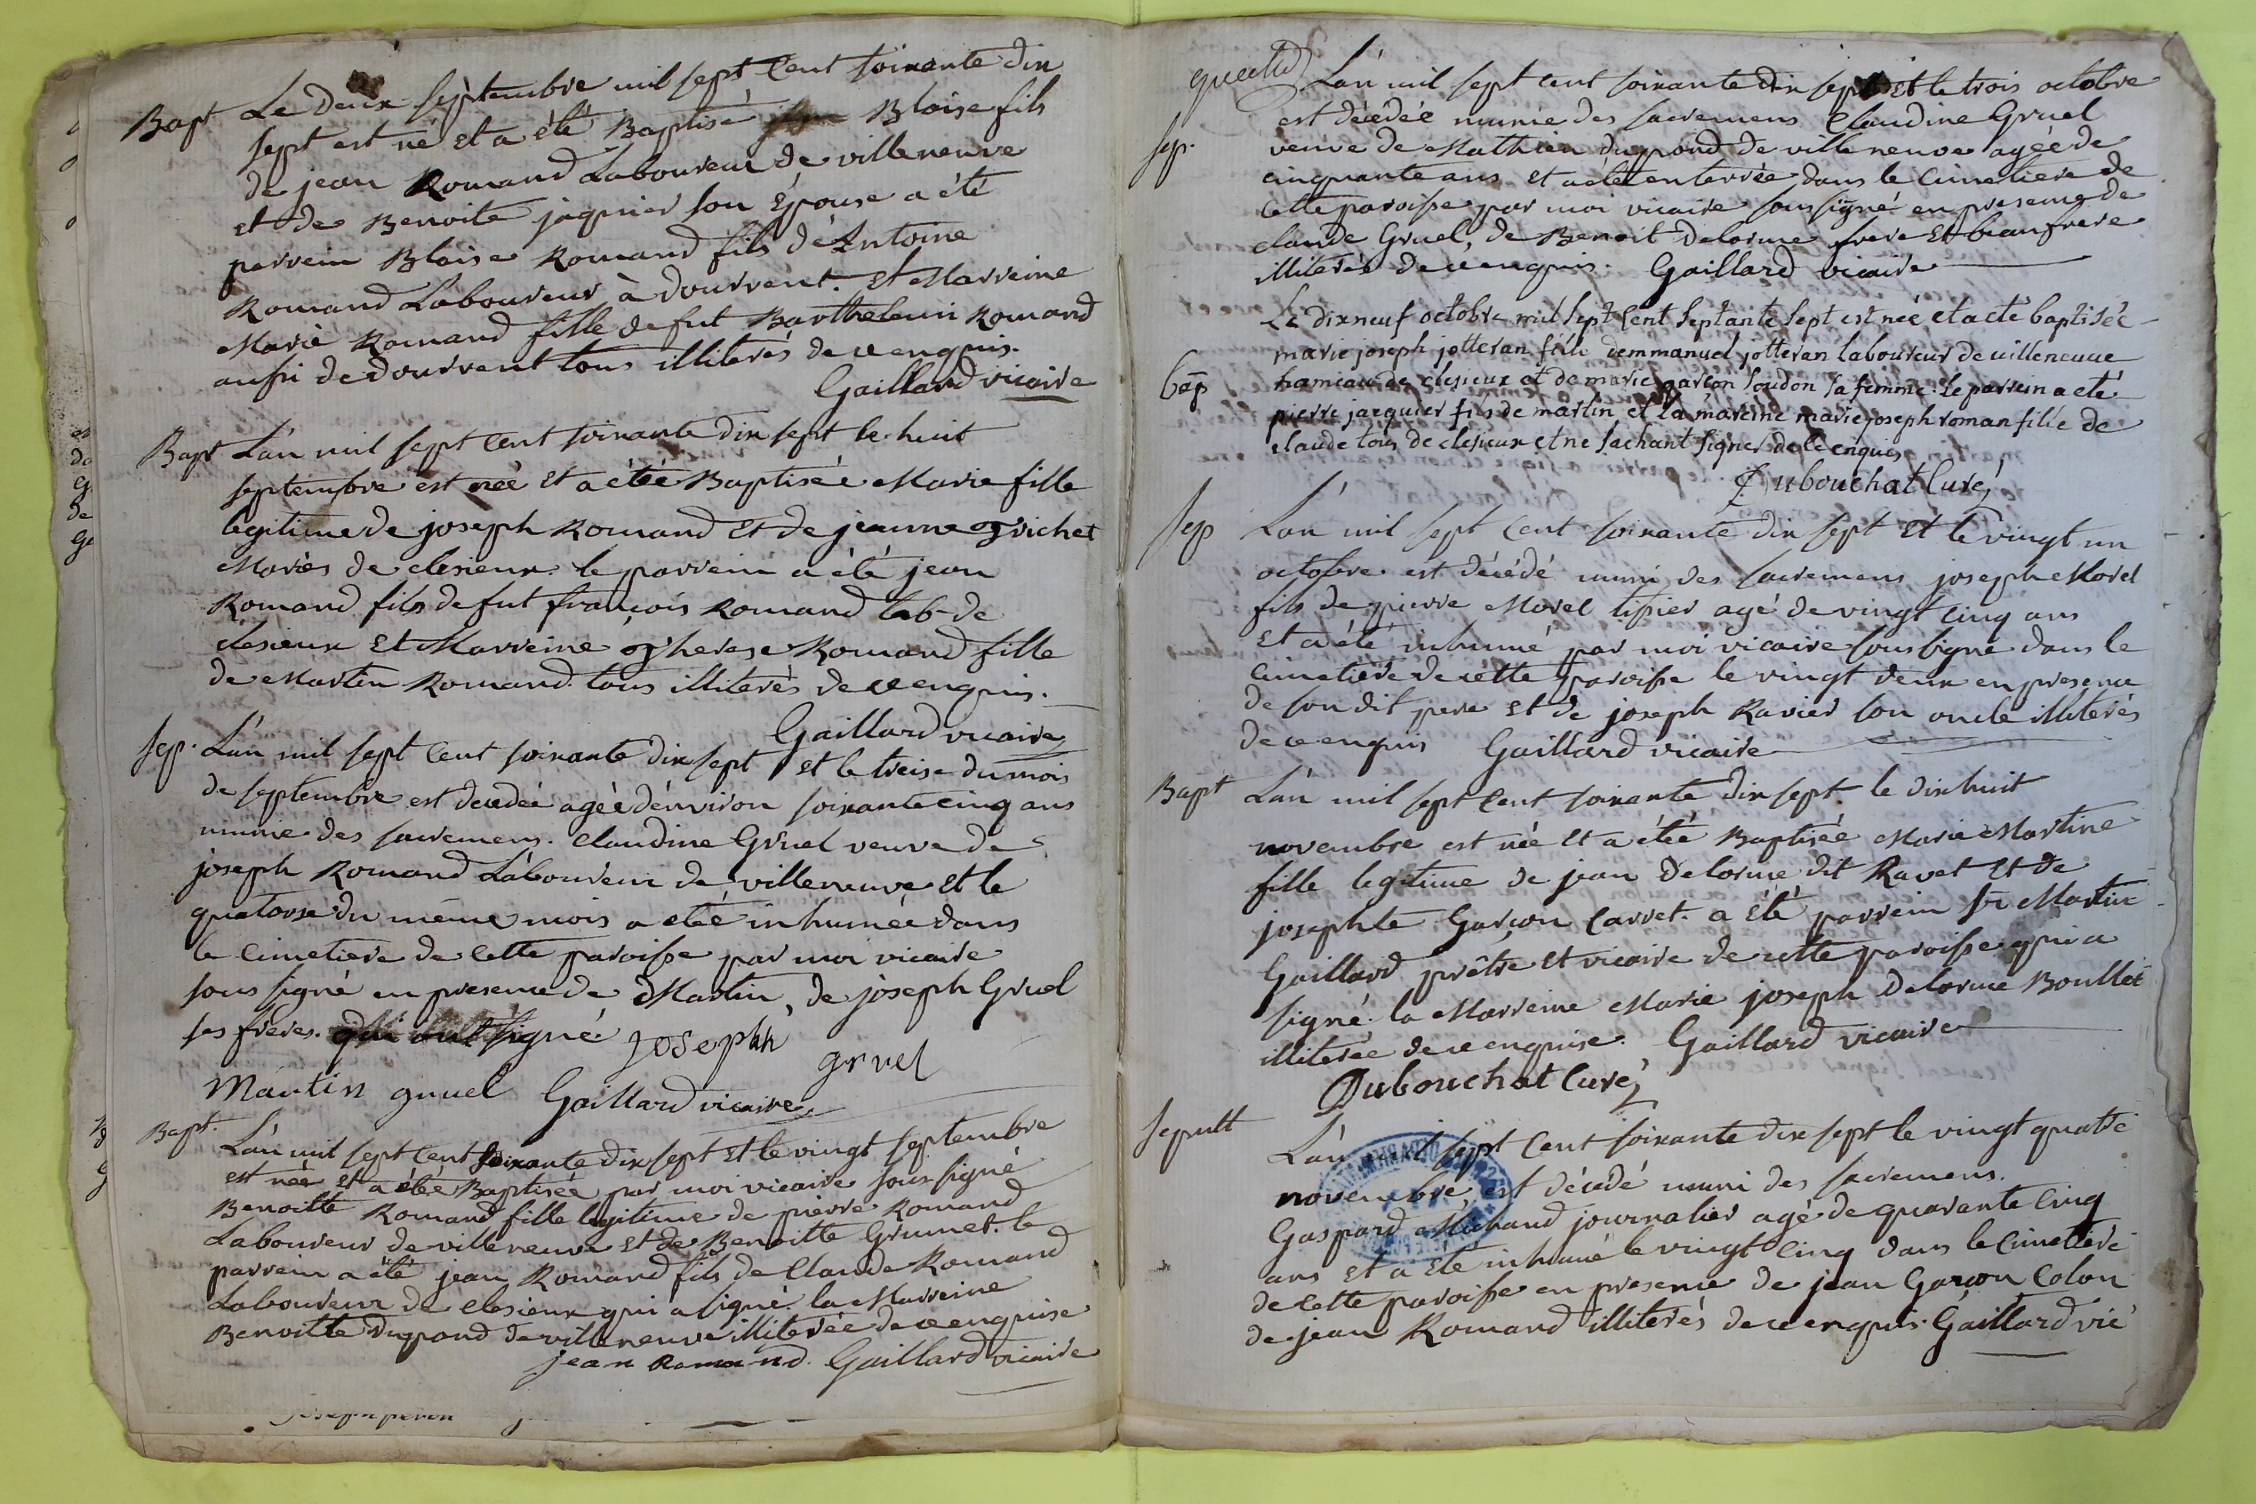 Bapt Le deux septembre mil sept cent soixante dix
sept est né et a été Baptisé Blaise fils
de jean Romand Laboureur de villeneuve
et de Benoite jaquier son Épouse a été
parrein Blaise Romand fils d'Antoine
Romand Laboureur à dourvent. et Marreine
Marie Romand fille de fut Barthelemi Romand
aussi de dourvent tous illiterés de ce enquis.
Gaillard vicaire
Bapt L'an mil sept cent soixante dix sept le huit
septembre est née et a étée Baptisée Marie fille
legitime de joseph Romand et de jeanne
Mariés de clesieux. le parrein a été jean
Romand fils de fut françois Romand lab. de
clesieux et Marreine therese Romand fille
de Martin Romand. tous illiterés de ce enquis.
Gaillard vicaire
sep. L'an mil sept cent soixante dix sept et le treise du mois
de septembre est decedée agée d'environ soixante cinq ans
munie des sacremens. Claudine Gruel veuve de
joseph Romand Laboureur de villeneuve et le
quatorse du même mois a etée inhumée dans
le cimetiere de cette paroisse par moi vicaire
sous signé en presence de Martin, de joseph Gruel
ses freres. qui ont signé joseph
gruel
Martin gruel Gaillard vicaire
Bapt. L'an mil sept cent soixante dix sept et le vingt septembre
est née et a étée Baptisée par moi vicaire sous signé
Benoitte Romand fille legitime de pierre Romand
Laboureur de villeneuve et de Benoitte Grumet. le
parrein a été jean Romand fils de Claude Romand
Laboureur de clesieux qui a signé. la Marreine
Benoitte dupond de villeneuve illiterée de ce enquise
jean Romand. Gaillard vicaire
L'an mil sept cent soixante dix sept et le trois octobre
est décédée munie des sacremens Claudine Gruel
sep. veuve de Mathieu dupond de villeneuve agée de
cinquante ans et a été enterrée dans le cimetiere de
cette paroisse par moi vicaire sous signé en presence de
claude Gruel, de Benoit delorme frere et beaufrere
illiterés de ce enquis. Gaillard vicaire
Le dixneuf octobre mil sept cent septante sept est née et a eté baptisée
marie joseph jotteran fille demmanuel jotteran laboureur de villeneuve
bap hameau de clesieux et de marie garçon soudon sa femme. le parrein a eté
pierre jacquier fils de martin et la mareine marie joseph roman fille de
claude tous de clesieux et ne sachant signer de ce enquis
Dubouchat Curé
sep L'an mil sept cent soixante dix sept et le vingt un
octobre est décédé muni des sacremens joseph Morel
fils de pierre Morel tissier agé de vingt cinq ans
et a été inhumé par moi vicaire sous signé dans le
cimetiere de cette paroisse le vingt deux en presence
de son dit pere et de joseph Ravier son oncle illiterés
de ce enquis Gaillard vicaire
Bapt L'an mil sept cent soixante dix sept le dix huit
novembre est née et a étée Baptisée Marie Martine
fille legitime de jean delorme dit Ravet et de
josephte Garçon Carret. a été parrein sr Martin
Gaillard prêtre et vicaire de cette paroisse qui a
signé. la Marreine Marie joseph delorme Boullet
illiterée de ce enquise. Gaillard vicaire
Dubouchat Curé
sepult L'an mil sept cent soixante dix sept le vingt quatre
novembre est décédé muni des sacremens
Gaspard Michaud journalier agé de quarante cinq
ans et a été inhumé le vingt cinq dans le cimetiere
de cette paroisse en presence de jean Garçon Colon
de jean Romand illiterés de ce enquis. Gaillard vic